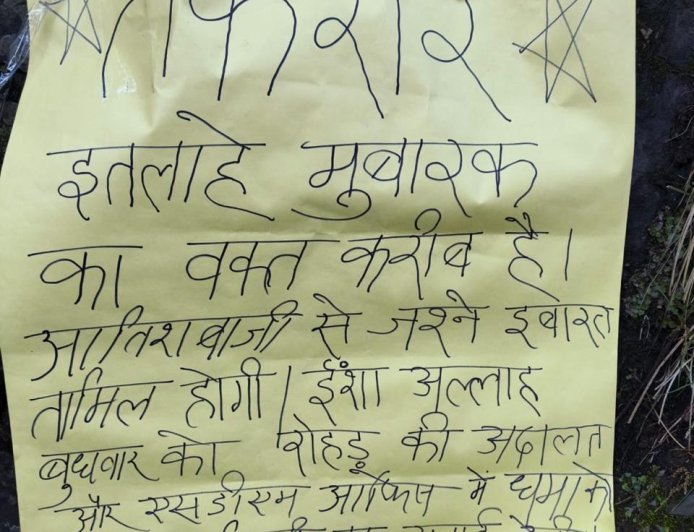 तकरीर
इतलाहे मुबारक
का वक्त करीब है।
आतिशबाजी से जश्ने इबारत
तामिल होगी। ईंशा अल्लाह
बुधवार को रोहडू की अदालत
और एसडीएम आफिस में धमाके